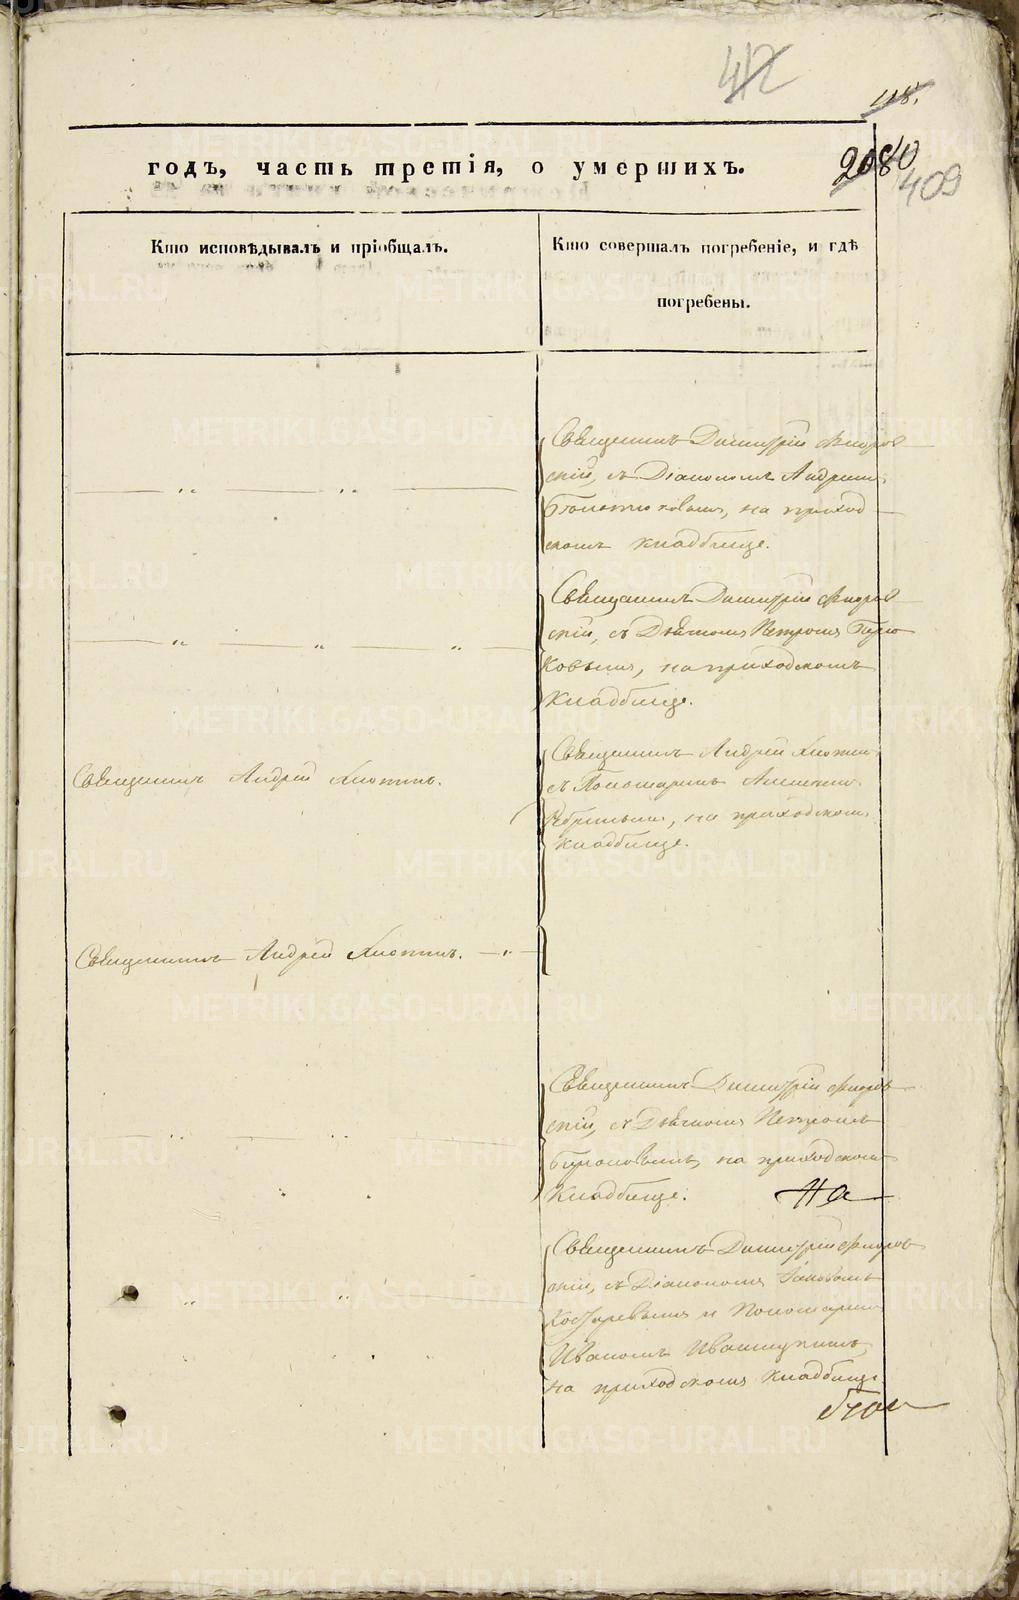 412
118.
годъ, часть третія, о умершихъ.
2080
409
Кто исповѣдывалъ и пріобщалъ.
Кто совершалъ погребеніе, и гдѣ
погребены.
Священникъ Димитрій Флоров
скій, съ Діакономъ Андреемъ
на приход
скомъ кладбище.
Священникъ Димитрій Флоров
скій, съ Дьячкомъ Петромъ
ковымъ, на приходскомъ
кладбище.
Священникъ Андрей Хлопинъ.
Священникъ Андрей
съ Пономаремъ
на приходскомъ
кладбище.
Священникъ Андрей Хлопинъ.
Священникъ Димитрій Флоров
скій, съ Дьячкомъ Петромъ
на приходскомъ
кладбище.
На
Священникъ Димитрій Флоров
скій, съ Діакономъ
Косаревымъ и Пономаремъ
Иваномъ
на приходскомъ кладбище
METRIKI.GASO-URAL.RU